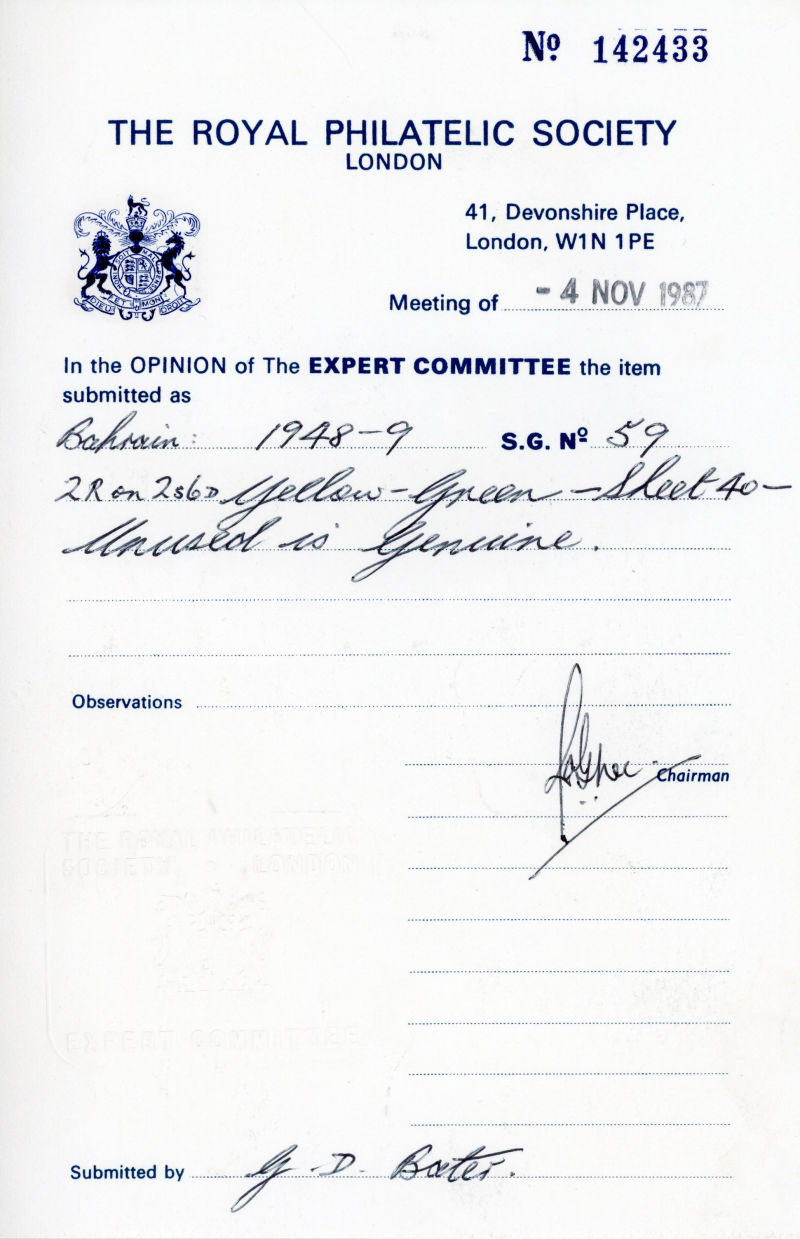 Nº 142433
THE ROYAL PHILATELIC SOCIETY
LONDON
41, Devonshire Place,
London, W1N 1PE
Meeting of - 4 NOV 1987
In the OPINION of The EXPERT COMMITTEE the item
submitted as
Bahrain: 1948-9 S.G. Nº 59
2R on 2s6D Yellow-Green - Sheet 40 -
Unused is Genuine.
Observations
Chairman
THE ROYAL PHILATELIC
SOCIETY, LONDON
EXPERT COMMITTEE
Submitted by G. D. Bates.